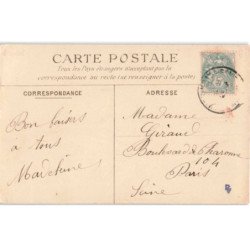 CARTE POSTALE
Tous les Pays étrangers n'acceptent pas la
correspondance au recto (se renseigner à la poste)
CORRESPONDANCE
ADRESSE
Bon baisers
a tous
Madeleine
Madame
Giraud
Boulevard de Charonne
104
Paris
Seine